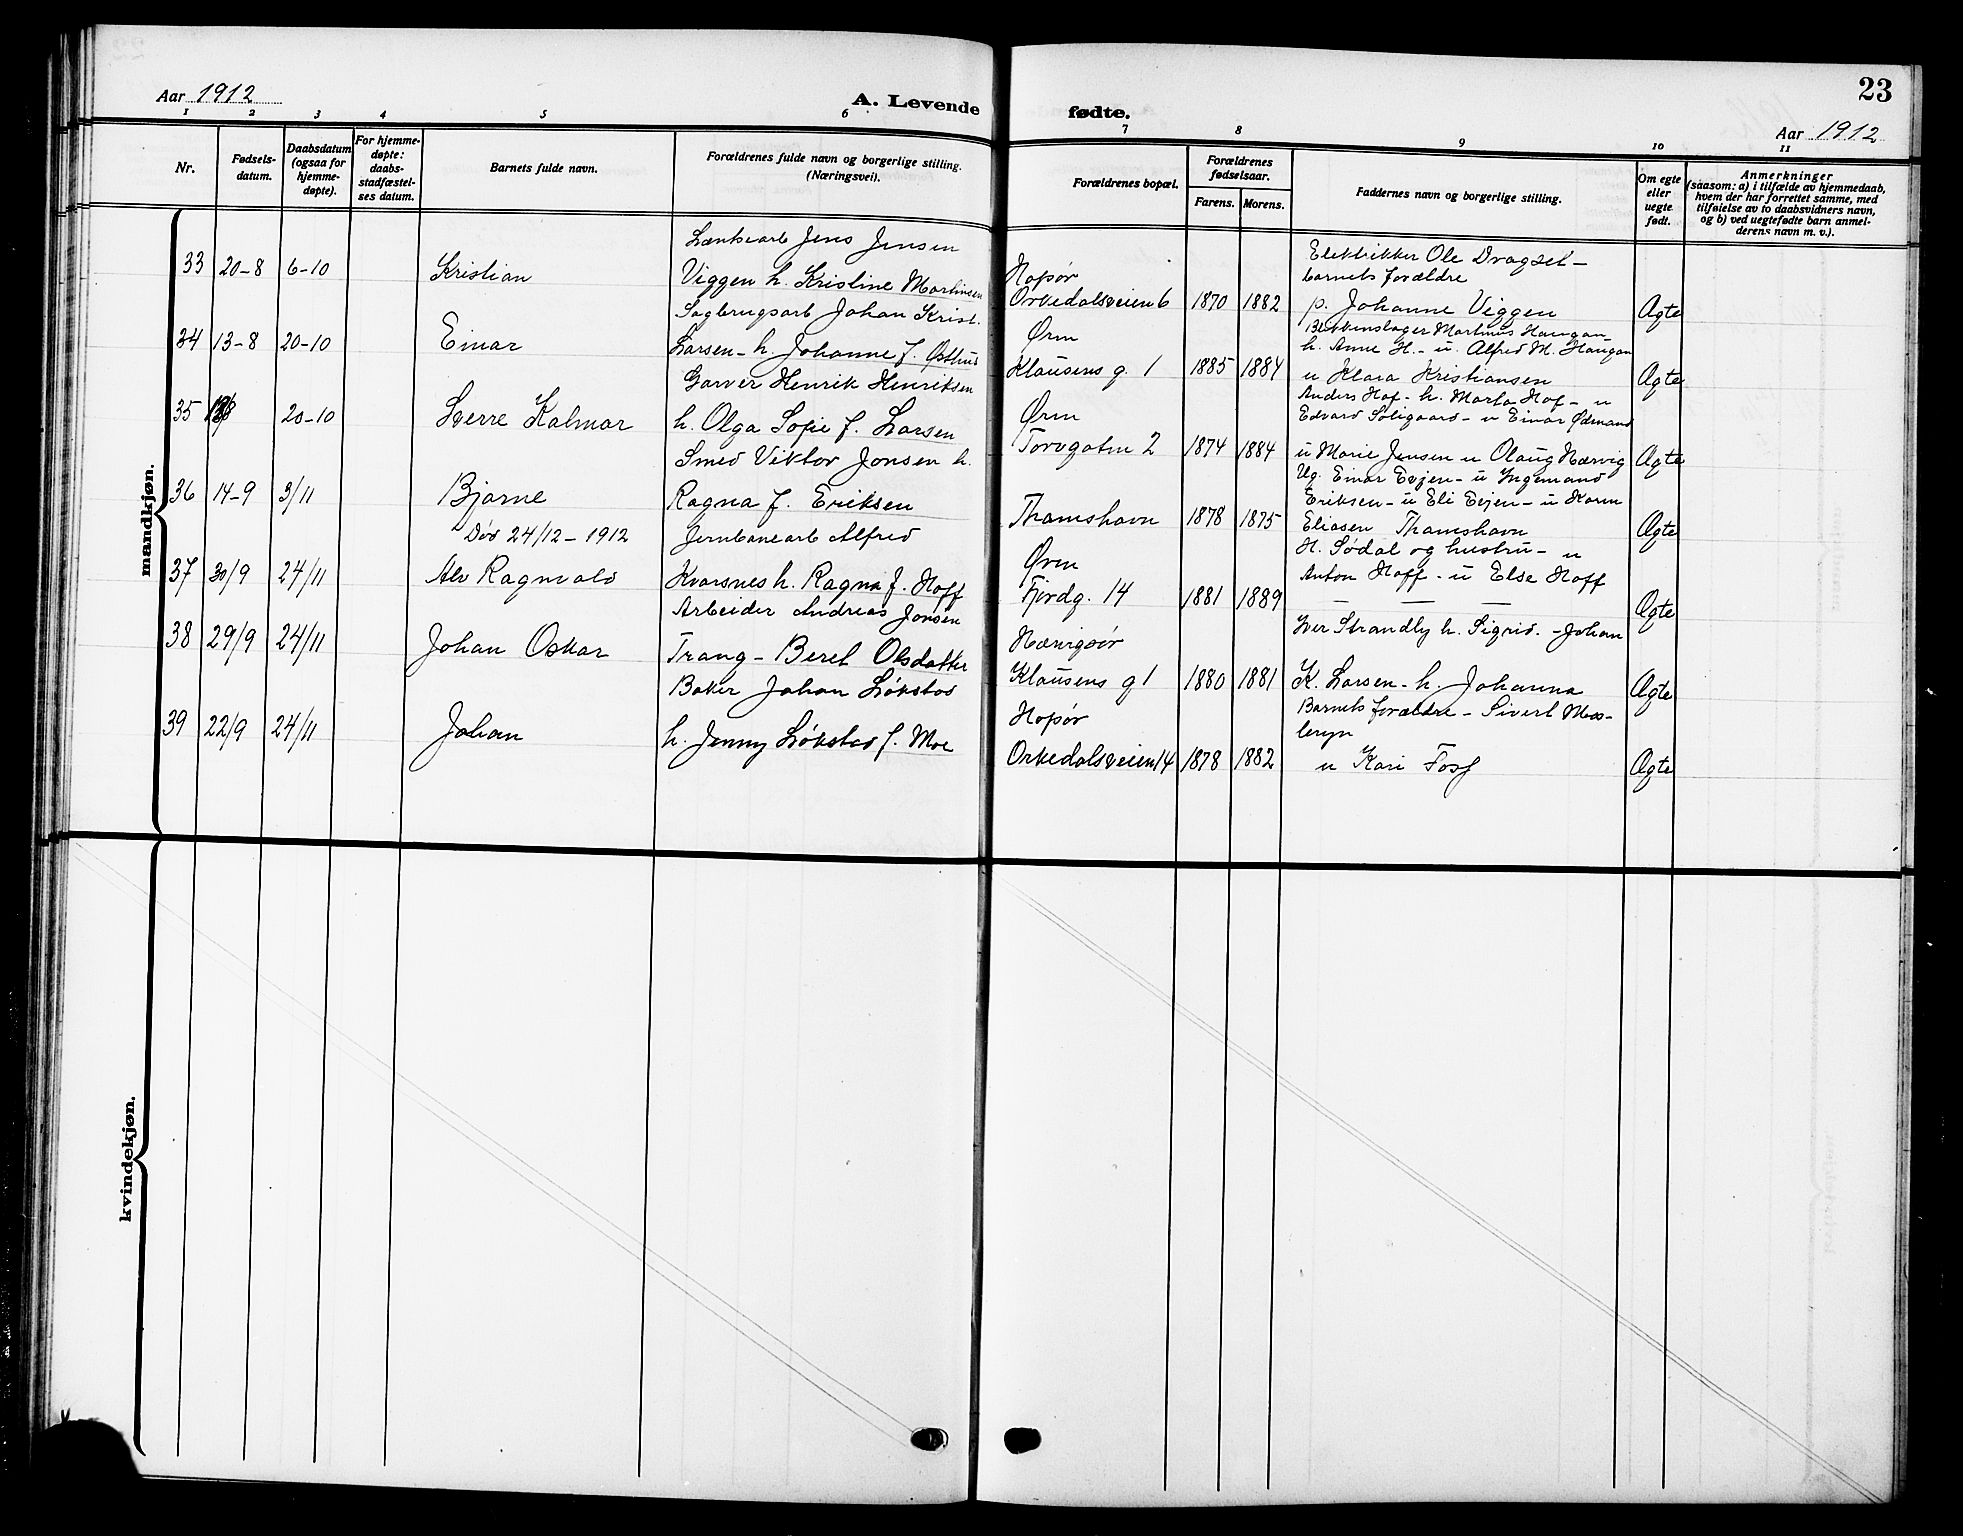 Aar 1912
A. Levende
1 2 3 4 5 6
Nr.
Fødsels-
datum.
Daabsdatum
(ogsaa for
hjemme-
døpte).
For hjemme-
døpte:
daabs-
stadfæstel-
ses datum.
Barnets fulde navn.
Forældrenes fulde navn og borgerlige stilling.
(Næringsvei).
mandkjøn.
33 20-8 6-10 Kristian
Jens Jensen
Viggen h. Kristine Martinsen
34 13-8 20-10 Einar
Sagbrugsarb Johan Krist.
Larsen - h. Johanne f. Østhus
35 20-10 Sverre Kalmar
Garver Henrik Henriksen
h. Olga Sofie f. Larsen
36 14-9 3/11 Bjarne
Død 24/12-1912
Smed Viktor Jonsen h.
Ragna f. Eriksen
37 30/9 24/11 Alv Ragnvald
Jernbanearb Alfred
Kvarsnes h. Ragna f. Hoff
38 29/9 24/11 Johan Oskar
Arbeider Andreas Jonsen
Trang - Beret Olsdatter
39 22/9 24/11 Johan
Baker Johan Løkstad
h. Jenny Løkstad f. Moe
kvindekjøn.
23
fødte.
Aar 1912
7 8 9 10 11
Forældrenes bopæl.
Forældrenes
fødselsaar.
Farens. Morens.
Faddernes navn og borgerlige stilling.
Om egte
eller
uegte
født.
Anmerkninger
(saasom: a) i tilfælde av hjemmedaab,
hvem der har forrettet samme, med
tilføielse av to daabsvidners navn,
og b) ved uegtefødte barn anmel-
derens navn m. v.).
Hopør
Orkedalsveien 6 1870 1882
Elektrikker Ole Dragset -
barnets forældre
p. Johanne Viggen
Ægte
Øren
Klausens g. 1 1885 1884
Blikkenslager Martinus Haugan
h. Anne H. - u. Alfred M. Haugan
u Klara Kristiansen
Ægte
Øren
Torvgaten 2 1874 1884
Anders Hof - h. Marta Hof - u
Edvard Soligaard - u Einar Ødmand
u Marie Jensen u Olaug Nærvig
Ægte
Thamshavn 1878 1875
Ug. Einar Evjen - u Ingemand
Eriksen - u Eli Evjen - u Karen
Eliasen Thamshavn
Ægte
Øren
Fjordg. 14 1881 1889
H. Sødal og hustru - u
Anton Hoff - u Else Hoff
Ægte
Nærvigsør
Klausens g 1 1880 1881
Iver Strandly h. Sigrid. - Johan
K. Larsen - h. Johanna
Ægte
Hopør
Orkedalsveien 14 1878 1882
Barnets forældre - Sivert Mos-
leryn
u Kari Foss
Ægte